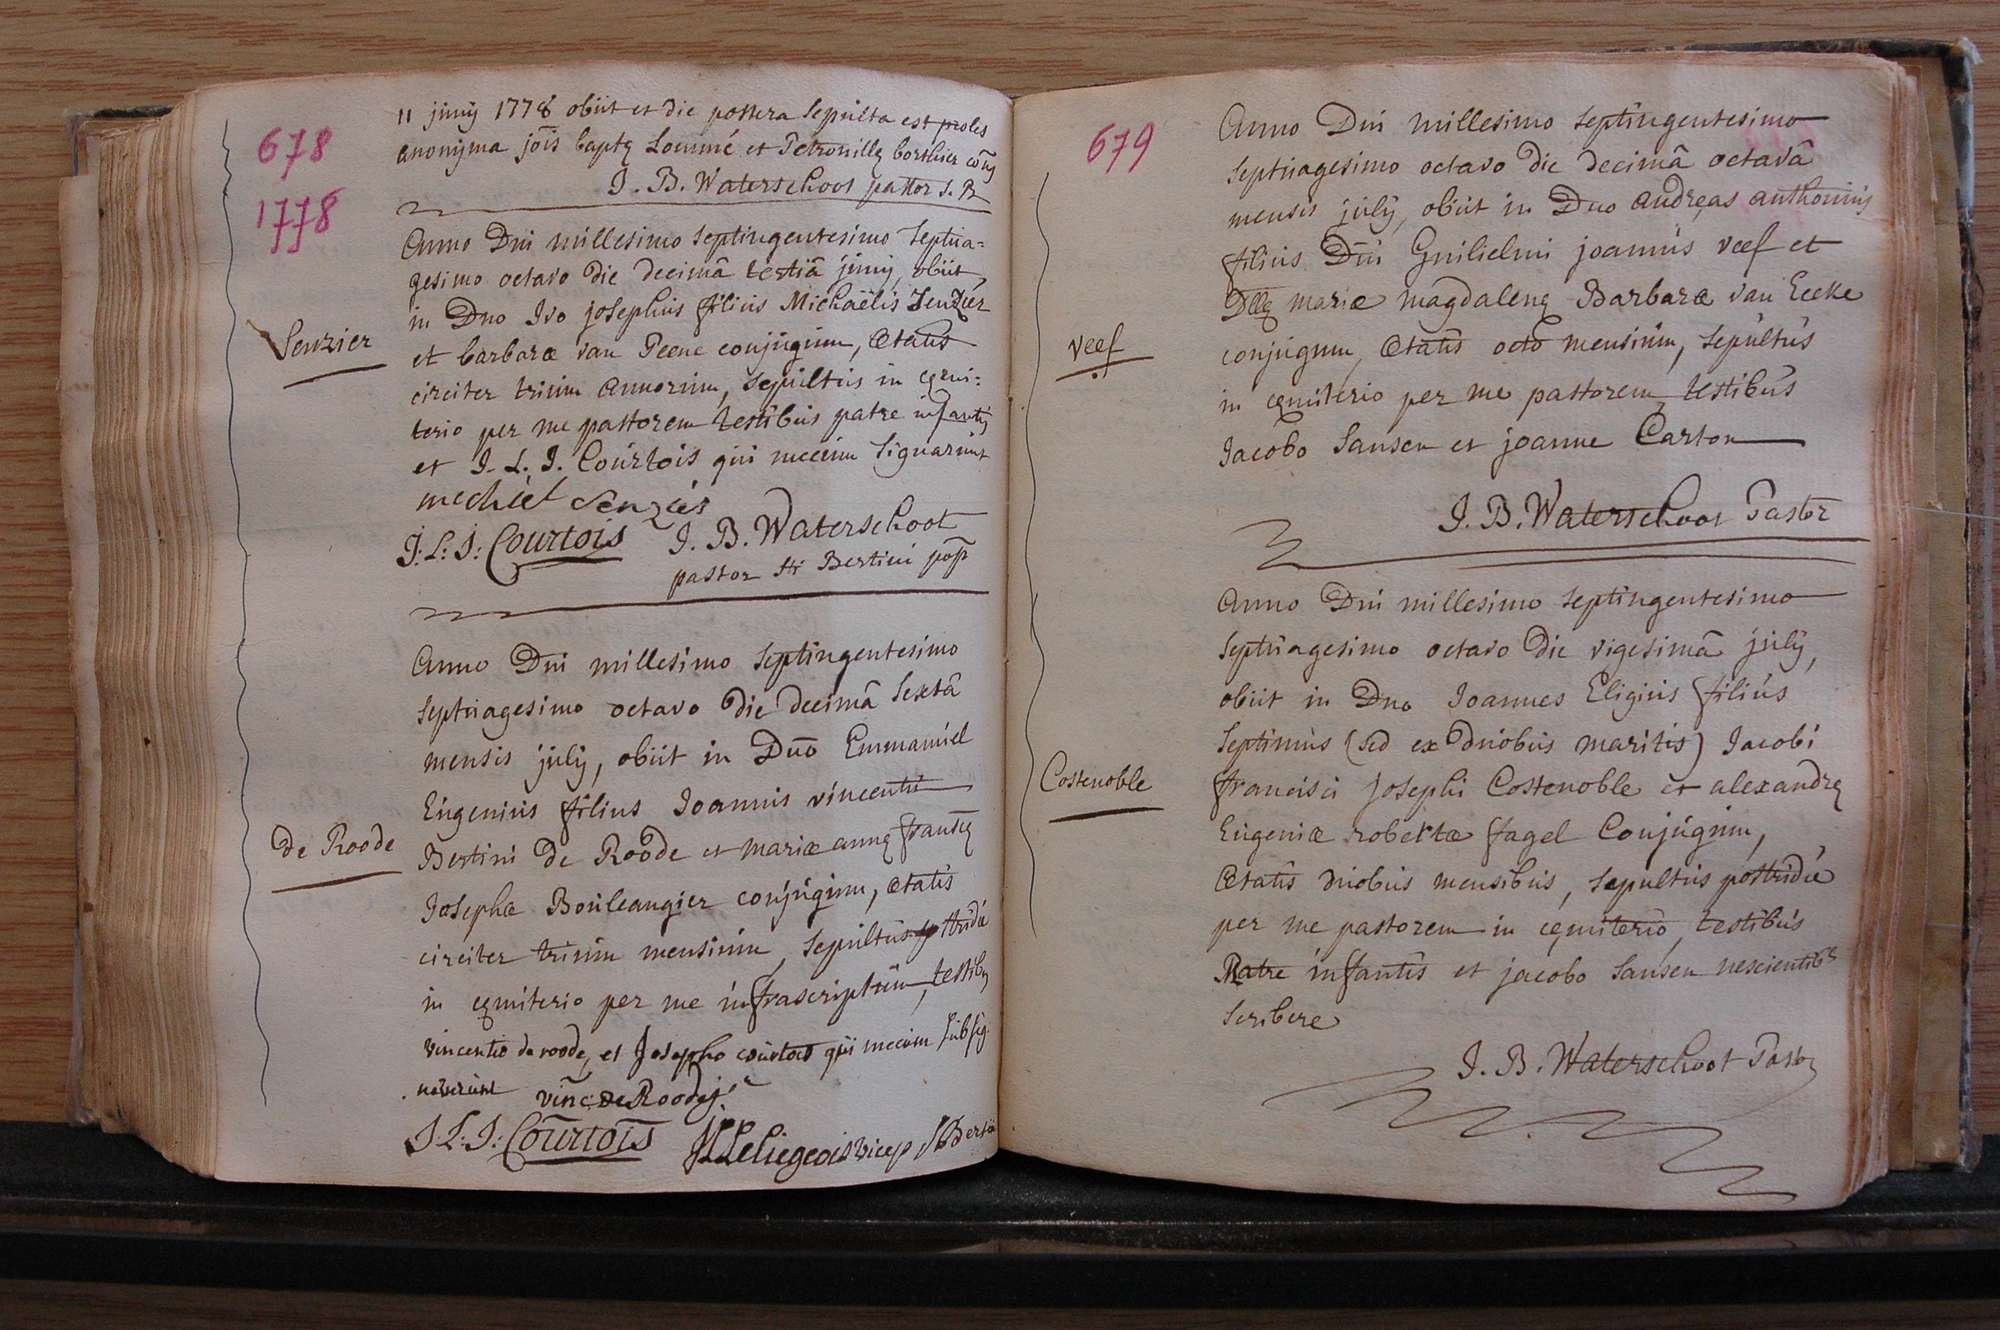 678
1778
11 junij 1778 obiit et die postera sepulta est proles
anonyma jõis baptę Lommé et Petronillę borthier
J. B. Waterschoot pastor S. B
Anno Dni millesimo septingentesimo septua=
gesimo octavo die decimâ tertiâ junij, obiit
in Dno Ivo josephus filius Michaëlis Senzier
et barbaræ van Peene conjugum, ætatis
circiter trium annorum, sepultus in cęmi=
terio per me pastorem testibus patre infantis
et J. L. J. Courtois qui mecum signarunt
Senzier
mechiel Senzier
J: L: J: Courtois J. B. Waterschoot
pastor sti Bertini
Anno Dni millesimo septingentesimo
septuagesimo octavo die decimâ sextâ
mensis july, obiit in Dno Emmanuel
Eugenius filius Joannis vincentii
Bertini de Roode et mariæ annę
de Roode
Josephæ Bouleangier conjugum, ætatis
circiter trium mensium, sepultus postridie
in cęmiterio per me infrascriptum, testib9
vincentio de roode, et Josepho courtois qui mecum subsig
naverunt vinc: de Roode
J: L: J: Courtois
679
Anno Dni millesimo septingentesimo
septuagesimo octavo die decimâ octavâ
mensis july, obiit in Dno andreas anthonius
filius Dni Guilielmi joannis veef et
Dllę mariæ magdalenę Barbaræ van Eecke
veef
conjugum, ætatis octo mensium, sepultus
in cęmiterio per me pastorem testibus
Jacobo Sansen et joanne Carton
J. B. Waterschoot Pastor
Anno Dni millesimo septingentesimo
septuagesimo octavo die vigesimâ july,
obiit in Dno Joannes Eligius filius
septimus (sed ex duobus maritis) Jacobi
Costenoble
francisci josephi Costenoble et alexandrę
Eugeniæ robertæ fagel conjugum,
ætatis duobus mensibus, sepultus postridie
per me pastorem in cęmiterio, testibus
Patre infantis et jacobo Sansen nescientibs
scribere
J. B. Waterschoot Pastor